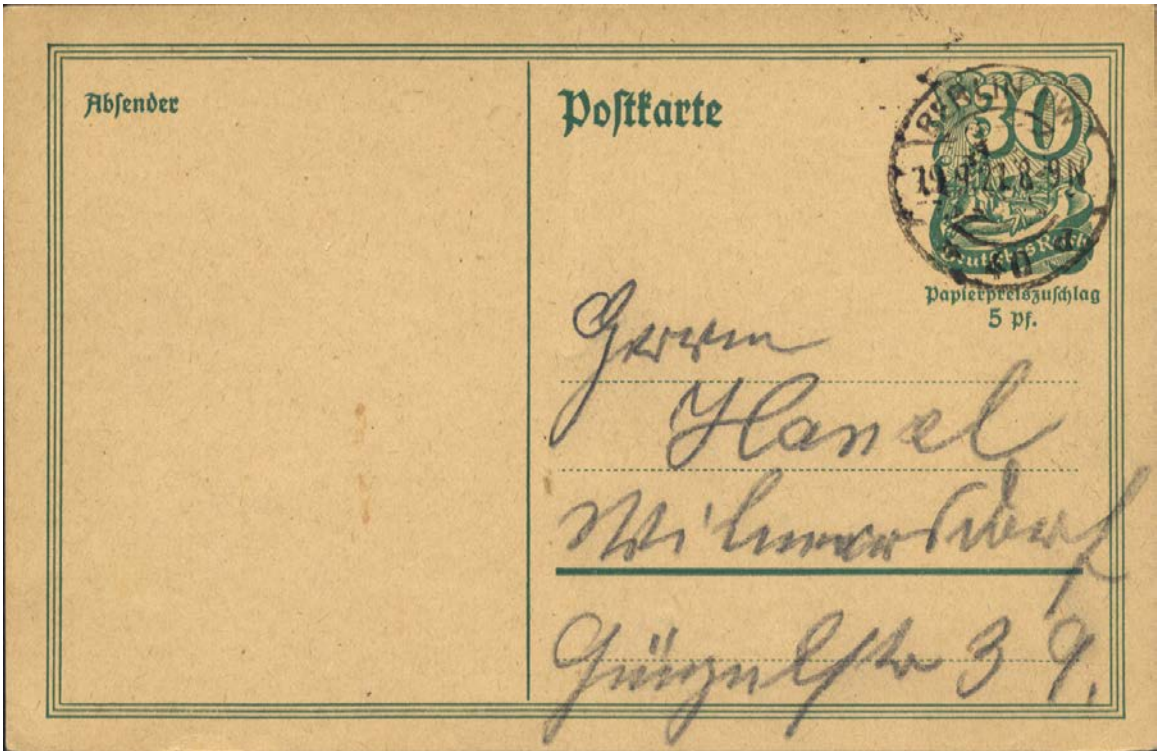 Absender
Postkarte
30
BERLIN NW
19.9.21.8-9N
40
Deutsches Reich
Papierpreiszuschlag
5 Pf.
Herrn
Hanel
Wilmersdorf
Güntzelstr 39.